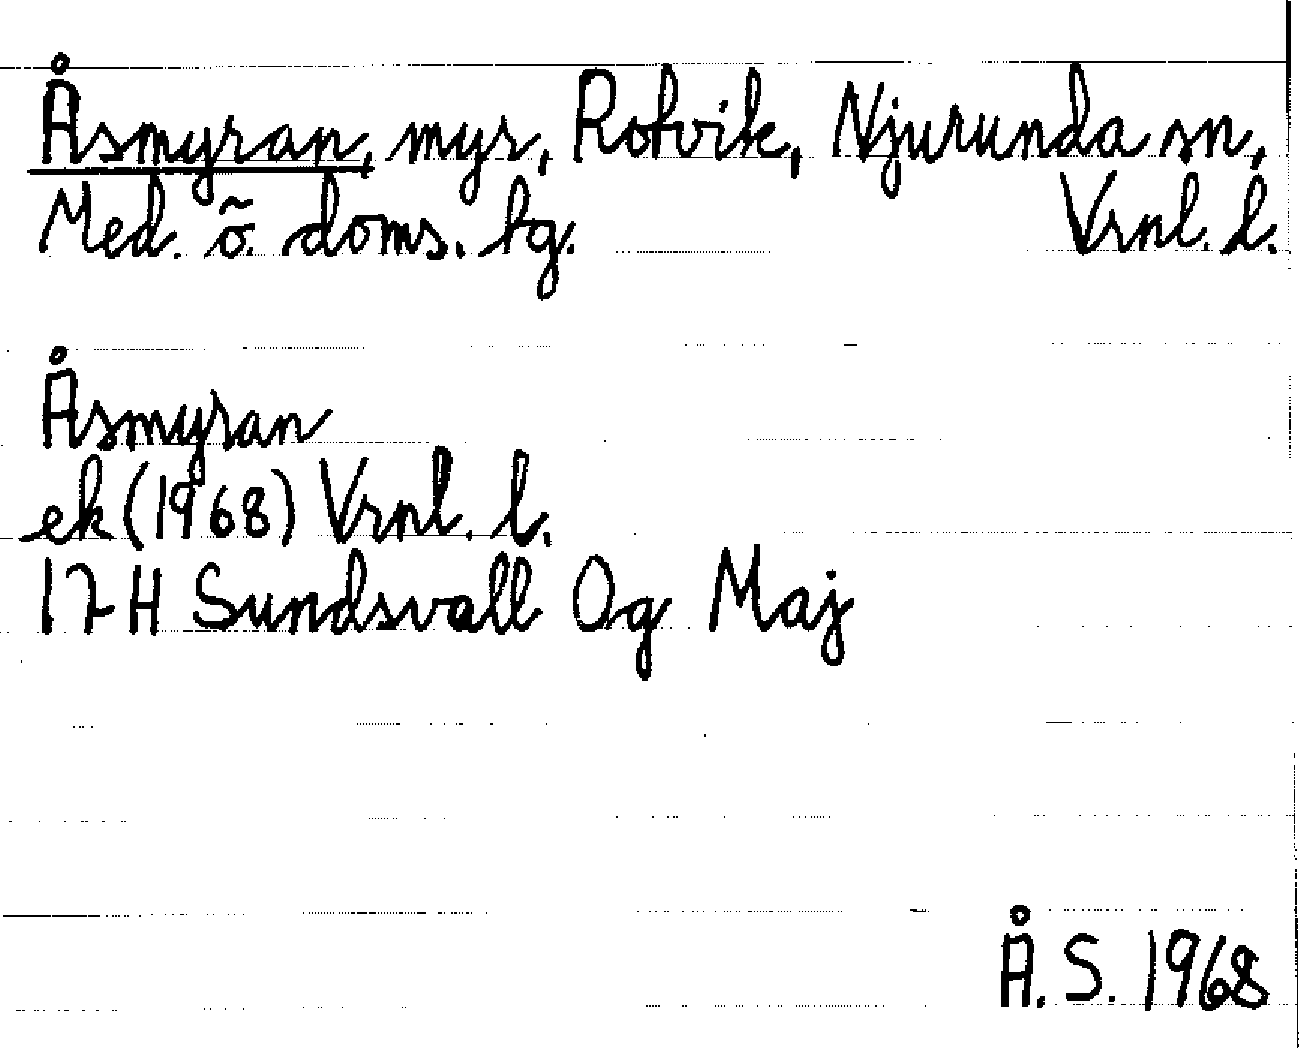 Åsmyran, myr, Rotvik, Njurunda sn,
Med. ö. doms. hg. Vrnl. l.
Åsmyran
ek (1968) Vrnl. l.
17H Sundsvall Og Maj
Å. S. 1968